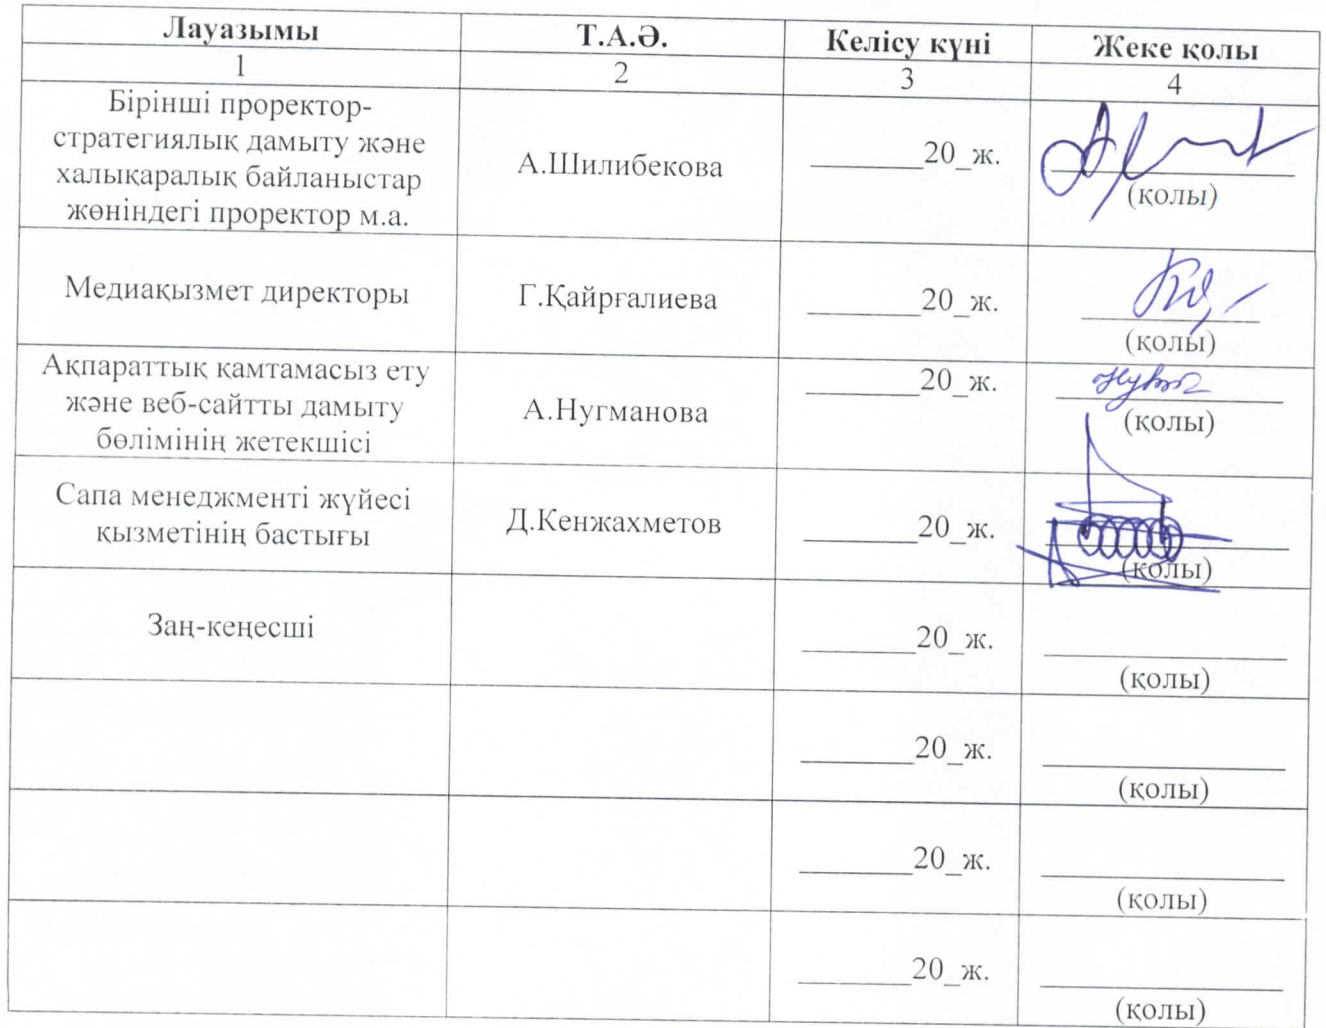 Лауазымы Т.А.Ә. Келісу күні Жеке қолы
1 2 3 4
Бірінші проректор-
стратегиялық дамыту және
халықаралық байланыстар
жөніндегі проректор м.а.
А.Шилибекова
_______20_ж.
(қолы)
Медиақызмет директоры
Г.Қайрғалиева
_______20_ж.
(қолы)
Ақпараттық қамтамасыз ету
және веб-сайтты дамыту
бөлімінің жетекшісі
А.Нугманова
_______20_ж.
(қолы)
Сапа менеджменті жүйесі
қызметінің бастығы
Д.Кенжахметов
_______20_ж.
(қолы)
Заң-кеңесші
_______20_ж.
(қолы)
_______20_ж.
(қолы)
_______20_ж.
(қолы)
_______20_ж.
(қолы)